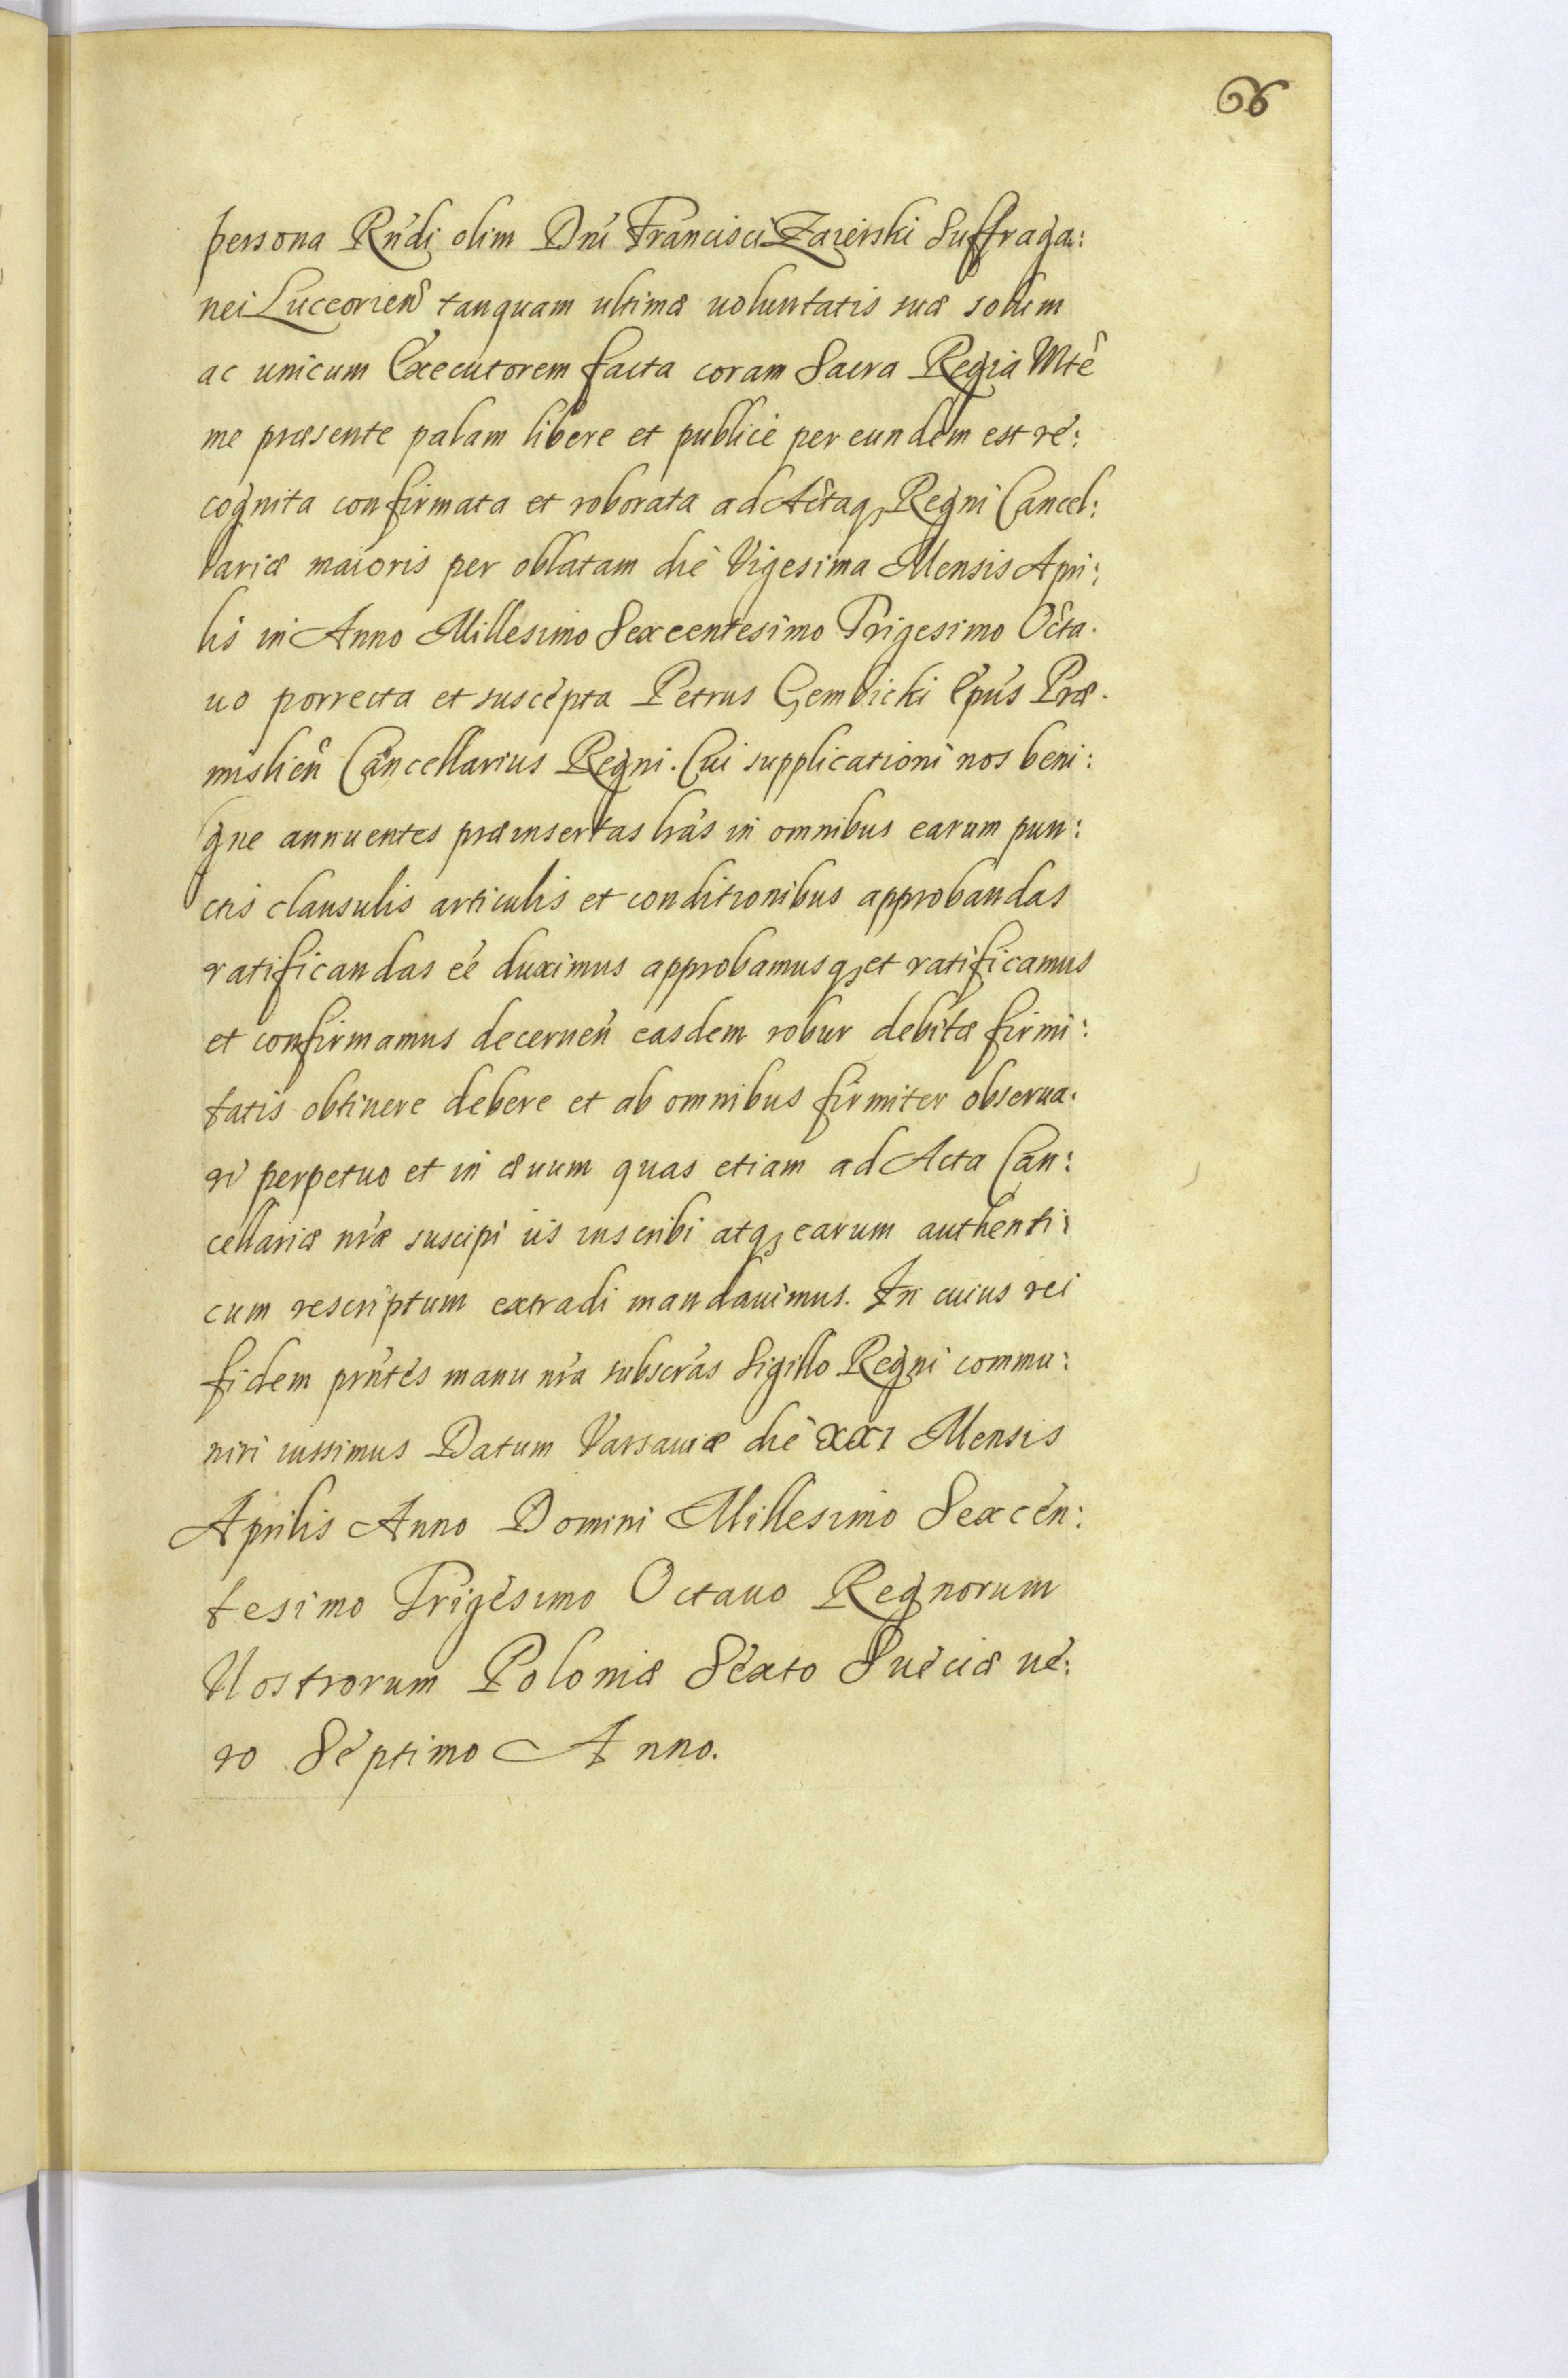 66
persona Rńdi olim Dnì Francisci Zaierski Suffraga:
nei Luceorien̂ tanquam ultimæ uoluntatis suæ solum
ac unicum Executorem facta coram Sacra Regia Mtê
me præsente palam libere et publicè per eundem est re:
cognita confirmata et roborata ad Actaq; Regni Cancel:
lariæ maioris per oblatam die Vigesima Mensis Apri:
lis in Anno Millesimo Sexcentesimo Trigesimo Octa.
uo porrecta et suscepta Petrus Gembicki Epús Præ.
mislien̂ Cancellarius Regni. Cui supplicationi nos beni:
gne annuentes præinsertas lrás in omnibus earum pun:
ctis clausulis articulis et conditionibus approbandas
ratificandas eé duximus approbamusq; et ratificamus
et confirmamus decerneń easdem robur debitæ firmi:
tatis obtinere debere et ab omnibus firmiter obserua.
ri perpetuo et in æuum quas etiam ad Acta Can:
cellariæ nræ suscipi iis inscribi atq; earum authenti:
cum rescriptum extradi mandauimus. In cuius rei
fidem prńtes manu nrá subscrás Sigillo Regni commu:
niri iussimus Datum Varsauiæ die XXI Mensis
Aprilis Anno Domini Millesimo Sexcen:
tesimo Trigesimo Octauo Regnorum
Nostrorum Poloniæ Sexto Sueciæ ue:
ro Septimo Anno.